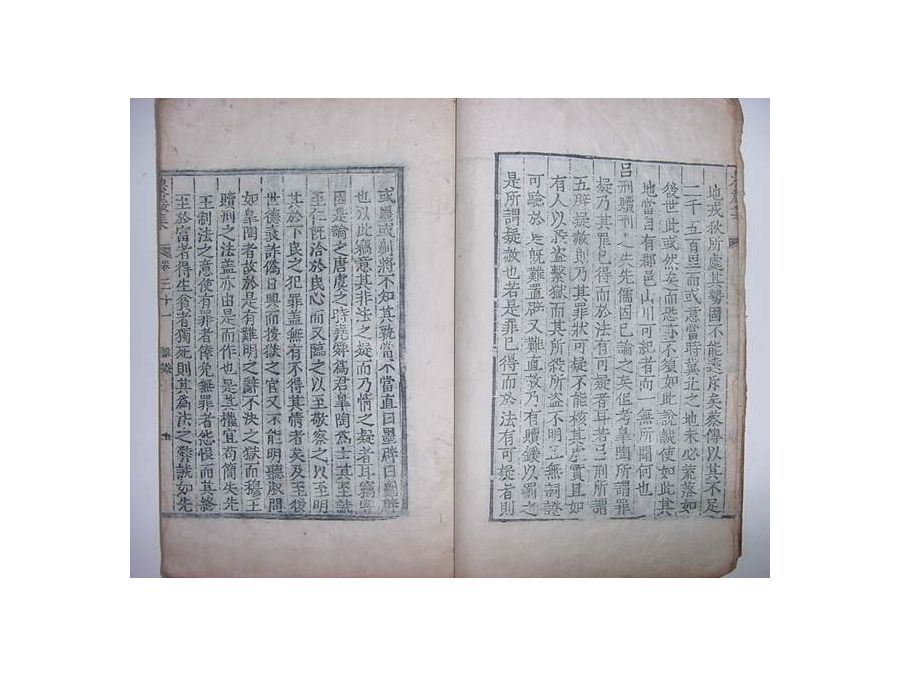 地戎狄所處其勢固不能遠斥矣蔡傳以其不足
二千五百里而或意當時冀北之地未必荒落如
後世此或然矣而恐亦不須如此說誠使如此其
地當自有都邑山川可紀者而一無所聞何也
呂刑贖刑之先儒固已論之矣但考皐陶所謂罪
疑乃其罪已得而於法有可疑者耳若呂刑所謂
五辟疑赦則乃其罪狀可疑不能核其虛實且如
有人以殺盜繫獄而其所殺所盜不明無詞證
可驗於是既難置辟又難直赦乃有贖鍰以罰之
是所謂疑赦也若是罪已得而於法有可疑者則
或墨或劓將不知其孰當不當直曰墨辟曰劓辟
也以此竊意其非法之疑而乃情之疑者耳竊嘗
因是論之唐虞之時堯舜爲君皐陶爲士其至誠
至仁既洽於民心而又臨之以至敬察之以至明
其於下民之犯罪蓋無有不得其情者矣及至後
世德衰詐僞日興而按獄之官又不能明聽淑問
如皐陶者故於是有難明之辭不決之獄而穆王
贖刑之法盖亦由是而作也是其權宜苟簡失先
王制法之意使有罪者倖免無罪者怨恨而其終
至於富者得生貧者獨死則其爲法之弊誠如先
卷三十一
雜議